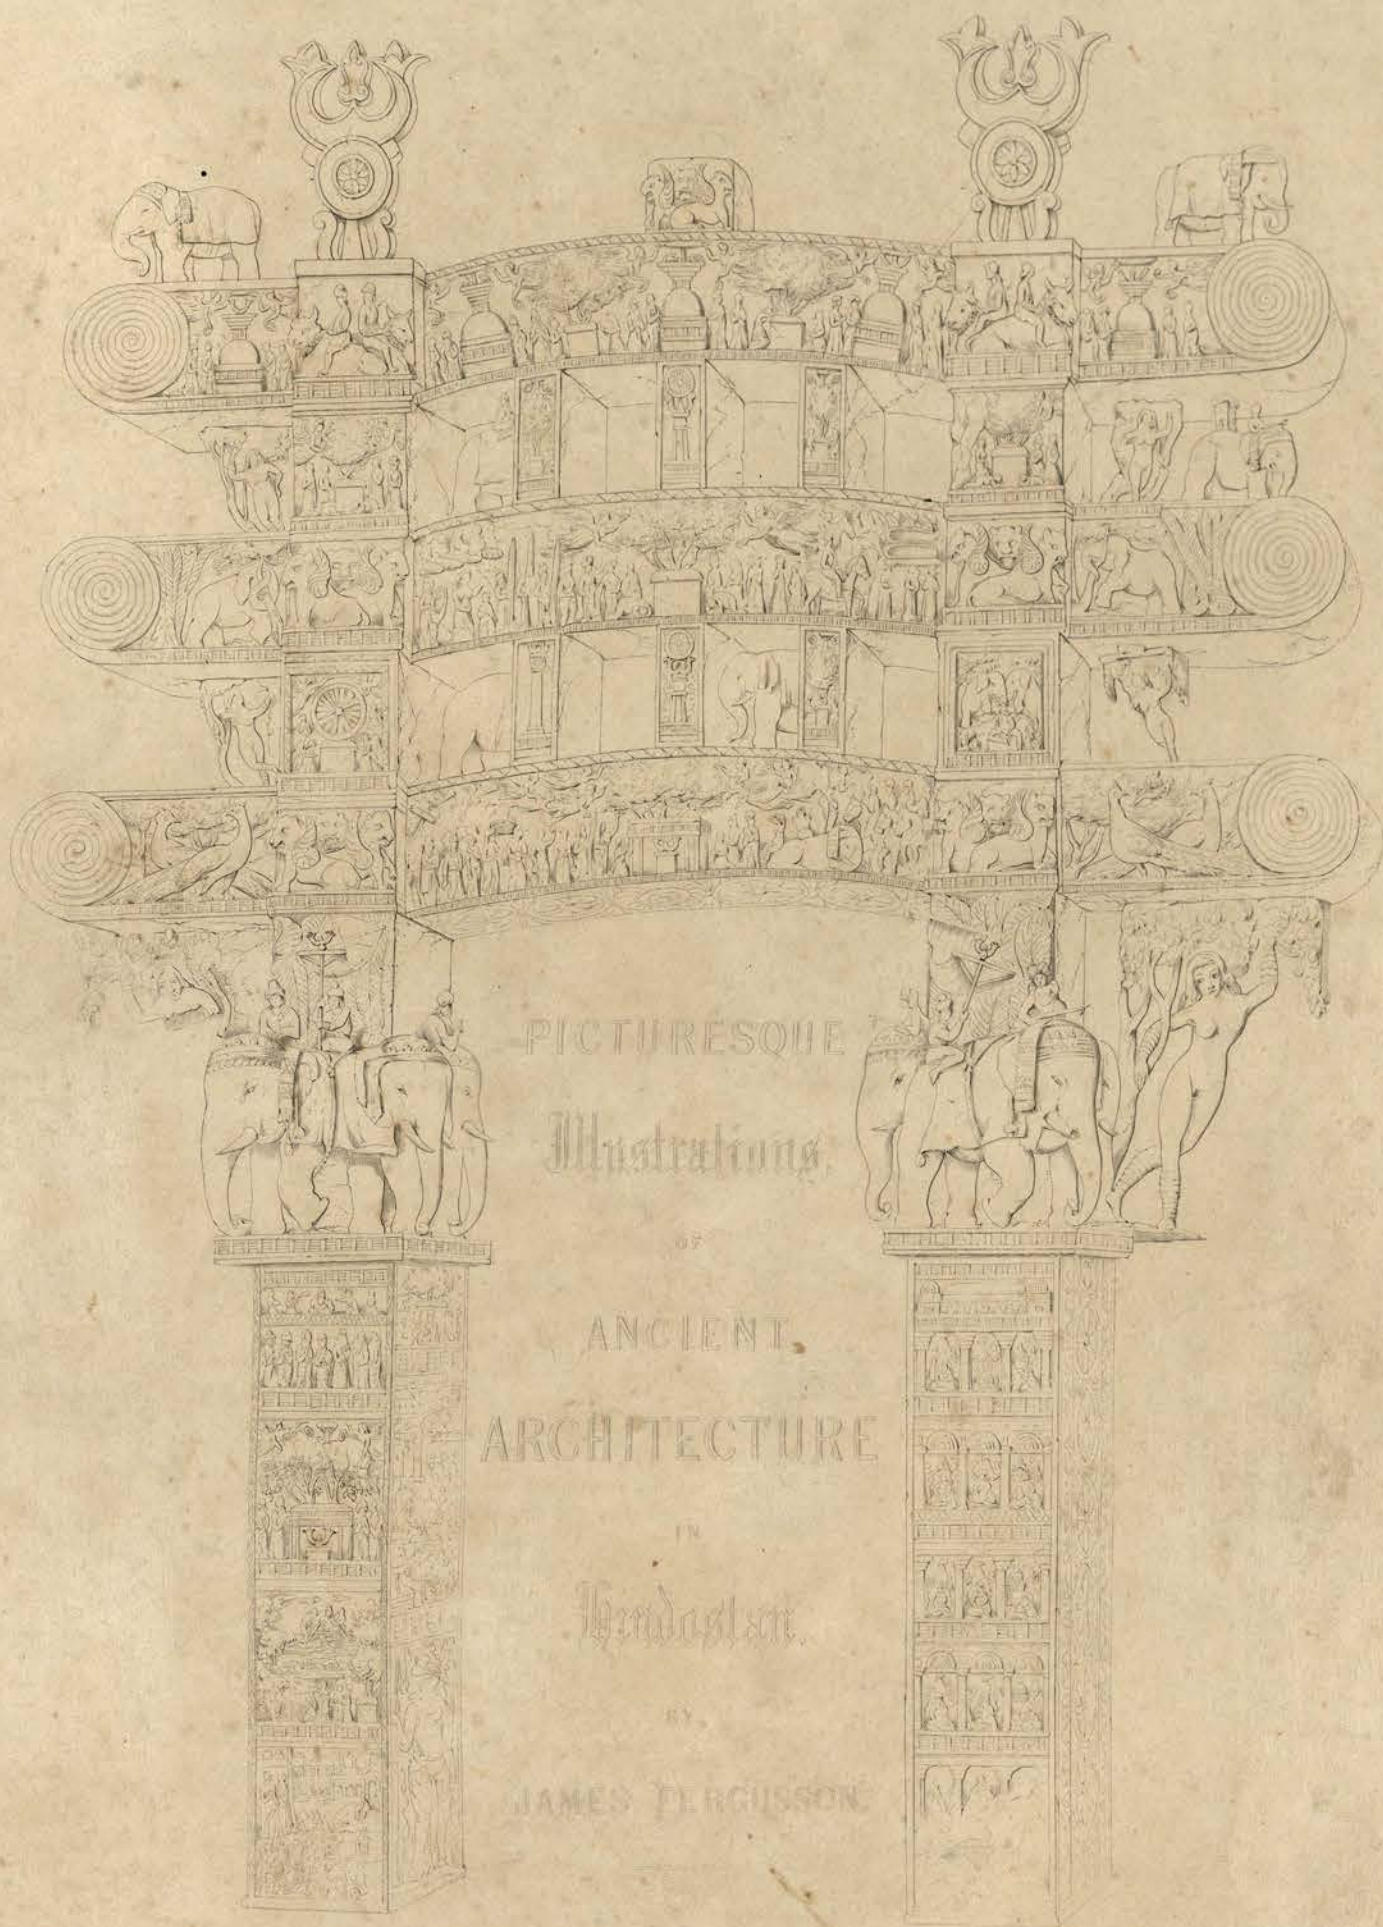 PICTURESQUE
Illustrations.
OF
ANCIENT
ARCHITECTURE
IN
Hindostan.
BY
JAMES FERGUSSON.